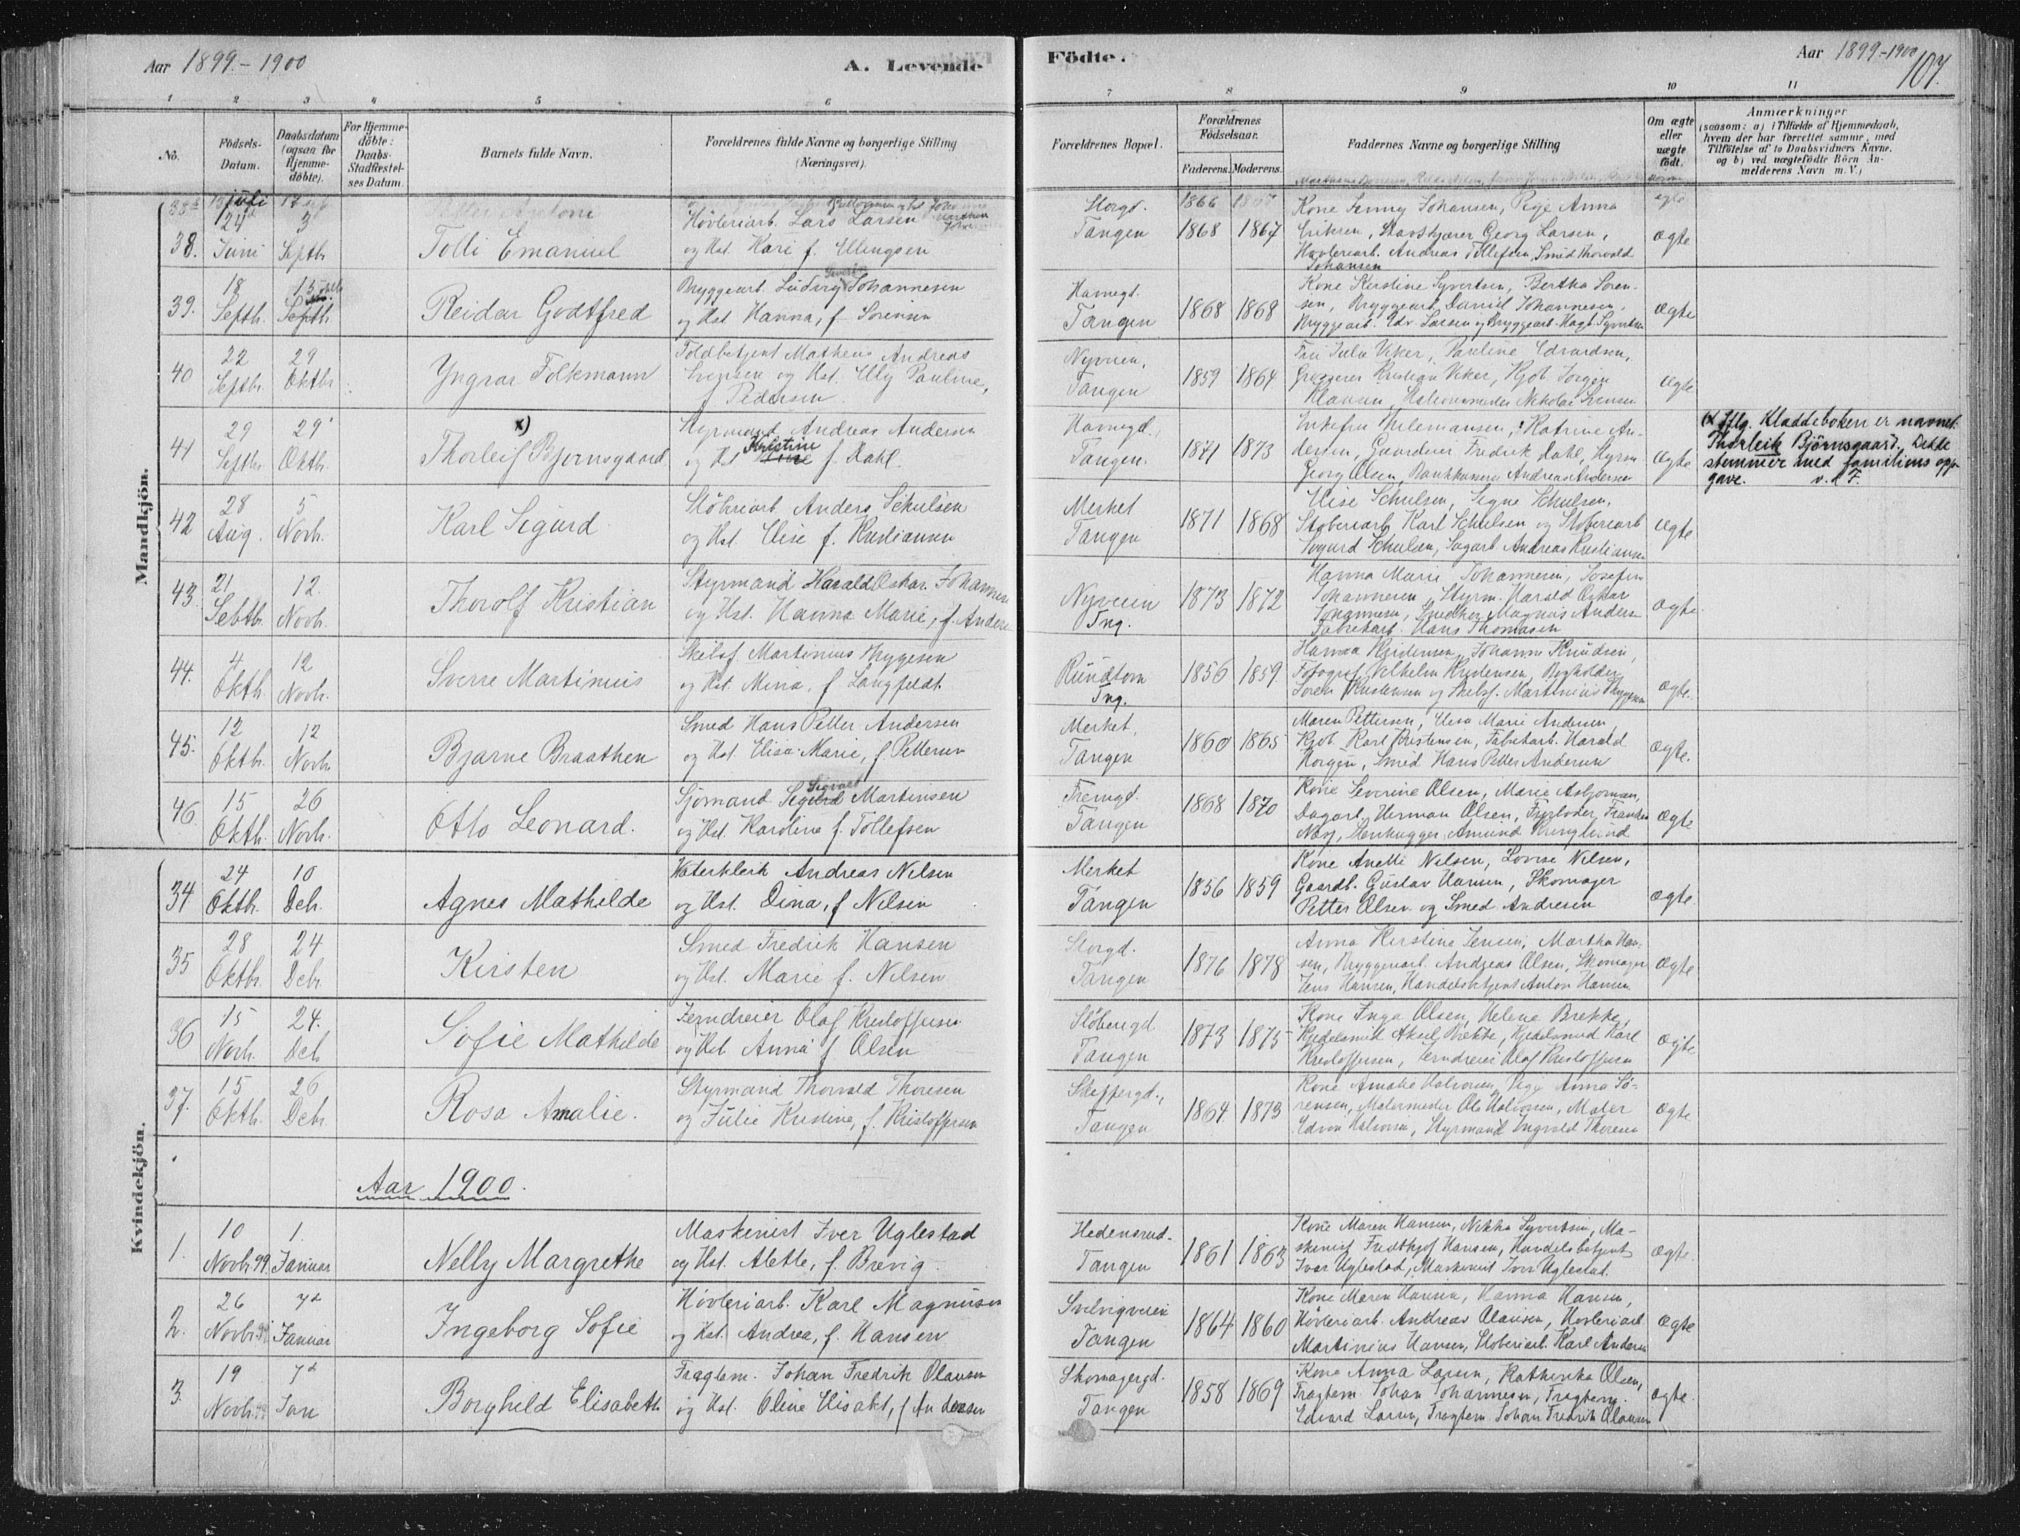 Aar 1899.-1900
A. Levende
Födte.
Aar 1899-1900
107.
1 2 3 4 5 6 7 8 9 10 11
No.
Födsels-
Datum.
Daabsdatum
(ogsaa for
Hjemme-
döbte).
For Hjemme-
döbte:
Daabs-
Stadfæstel-
ses Datum.
Barnets fulde Navn.
Forældrenes fulde Navne og borgerlige Stilling
(Næringsvei).
Forældrenes Bopæl.
Forældrenes
Födselsaar.
Faderens.
Moderens.
Faddernes Navne og borgerlige Stilling
Om ægte
eller
uægte
födt.
Anmærkninger
(saasom: a) i Tilfælde af Hjemmedaab,
hvem der har forrettet samme, med
Tilföielse af to Daabsvidners Navne,
og b) ved uægtefödte Börn An-
melderens Navn m. V.)
Mandkjön.
38.
24
Juni
3
Septb.
Tolli Emanuel
Høvleriarb. Lars Larsen
og Hst. Kari f. Ellingsen
Storgd.
Tangen
1866
1868 1867
Kone Jenny Johansen, Pige Anna
Eriksen, Georg Larsen,
Høvleriarb. Andreas Tollefsen, Smed Thorvald
Johansen
ægte
39.
18
Septb.
15
Reidar Godtfred
Bryggearb. Ludvig Johannesen
og Hst. Hanna, f. Sørensen
Havnegd.
Tangen
1868 1868
Kone Kirstine Syvertsen, Bertha Søren-
sen, Bryggearb. Daniel Johannesen,
Bryggearb. Edv. Larsen og Bryggearb. Syvertsen
ægte
40
22
Septbr.
29
Oktbr.
Yngvar Folkmann
Toldbetjent Matheus Andreas
Svensen og Hst. Elly Pauline,
f. Pedersen.
Nyveien,
Tangen
1859 1864
Julie Eker, Pauline Edvardsen,
Grosserer Kristian Eker, Kjøb. Jørgen
Klausen,
ægte
41
29
Septbr.
29
Oktbr.
x)
Thorleif Bjornsgaard
Styrmand Andreas Andersen
og Hst. Kristine f. Dahl.
Havnegd.,
Tangen.
1871 1873
Katrine An-
dersen, Gaardeier Fredrik Dahl, Styrm.
Georg Olsen, Bankkasserer Andreas Andersen
ægte
(x Iflg. Kladdeboken er navnet
Thorleik Bjørnsgaard. Dette
stemmer med familiens opp-
gave. v. d F.
42
28
Aug.
5
Novb.
Karl Sigurd.
Støberiarb. Anders Schulsen
og Hst. Elise f. Kristiansen
Merket
Tangen
1871 1868
Elise Schulsen, Signe Schulsen,
Støberiarb. Karl Schulsen og Støberiarb.
Sigurd Schulsen, Sagarb. Andreas Kristiansen
ægte
43.
21
Septbr.
12
Novb.
Thorolf Kristian
Styrmand Harald Oskar Johannesen
og Hst. Hanna Marie, f. Andersen
Nyveien
Tng.
1873 1872
Hanna Marie Johannesen, Josefin
Johannesen, Styrm. Harald Oskar
Johannesen, Magnus Andersen
Fabrikarb. Hans Thomasen
ægte
44.
4
Oktb.
12
Novb.
Sverre Martinius
Skibsf. Martinius Bryggesen
og Hst. Mina, f. Langfeldt.
Rundtom
Tng.
1856 1859
Johanne Knudsen,
Fotograf Vilhelm Kristensen, Bogholder
Søren Kristensen og Skibsf. Martinius Bryggesen
ægte.
45.
12
Oktbr.
12
Novb.
Bjarne Braathen
Smed Hans Petter Andersen
og Hst. Elisa Marie, f. Pettersen
Merket,
Tangen
1860 1865
Maren Pettersen, Elisa Marie Andersen,
Kjøb. Karl Kristensen, Fabrikarb. Harald
Horgen, Smed Hans Petter Andersen
ægte.
46.
15
Oktb.
26
Novb.
Otto Leonard.
Sjømand Sigvart Martinsen
og Hst. Karoline f. Tollefsen
Tangen
1868 1870
Kone Severine Olsen, Marie Asbjørnsen,
Dagarb. Herman Olsen, Fyrbøder
Næs, Stenhugger Amund Ringlund
ægte
Kvindekjön.
34
24
Oktbr.
10
Deb.
Agnes Mathilde
Vaterklerk Andreas Nilsen
og Hst. Dina, f. Nilsen
Merket
Tangen
1856 1859
Kone Anette Nilsen, Lovise Nilsen,
Gaardb. Gustav Hansen, Skomager
Petter Olsen og Smed Andresen
ægte.
35
28
Oktbr.
24
Debr.
Kirsten
Smed Fredrik Hansen
og Hst. Marie f. Nilsen
Storgd.
Tangen
1876 1878
Anna Kirstine Jensen, Martha Han-
sen, Bryggeriarb. Andreas Olsen, Skomager
Jens Hansen, Handelsbetjent Anton Hansen
ægte
36
15
Novb.
24.
Deb.
Sofie Mathilde
Jerndreier Olaf Kristoffersen
og Hst. Anna f. Olsen
Støberigd.
Tangen
1873 1875
Kone Inga Olsen, Helene Brekke,
Kjedelsmed Aksel Brekke, Kjedelsmed Karl
Kristoffersen, Jerndreier Olaf Kristoffersen
ægte
37.
15
Oktbr.
26
Debr.
Rosa Amalie.
Styrmand Thorvald Thoresen
og Julie Kristine, f. Kristoffersen
Skippergd.,
Tangen
1864 1873
Kone Amalie Halvorsen, Pige Anna Sø-
rensen, Malermester Ole Halvorsen, Maler
Edvin Halvorsen, Styrmand Ingvald Thoresen
ægte
Aar 1900.
1.
10
Novbr. 99.
1.
Januar
Nelly Margrethe
Maskinist Iver Uglestad
og Hst. Alette, f. Brevig.
Hedensrud.
Tangen
1861 1863
Kone Maren Hansen, Nikka Syvertsen, Ma-
skinist Fredthjof Hansen, Handelsbetjent
Ivar Uglestad, Maskinist Iver Uglestad.
ægte.
2.
26
Novbr.
7de
Januar
Ingeborg Sofie
Høvleriarb. Karl Magnusen
og Hst. Andrea, f. Hansen
Svelvigveien
Tangen
1864 1860
Kone Maren Hansen, Hanna Hansen,
Høvleriarb. Andreas Olausen, Høvleriarb.
Martinius Hansen, Støberiarb. Karl Andersen
ægte
3.
19
Novbr.
7de
Jan
Borghild Elisabeth
Fragtem. Johan Fredrik Olausen
og Hst. Oline Elisabt, f. Andersen
Skomagergd.
Tangen
1858 1869
Kone Anna Larsen, Kathinka Olsen,
Fragtem. Johan Johannesen, Fragtem.
Edvard Larsen, Fragtem. Johan Fredrik Olausen
ægte.